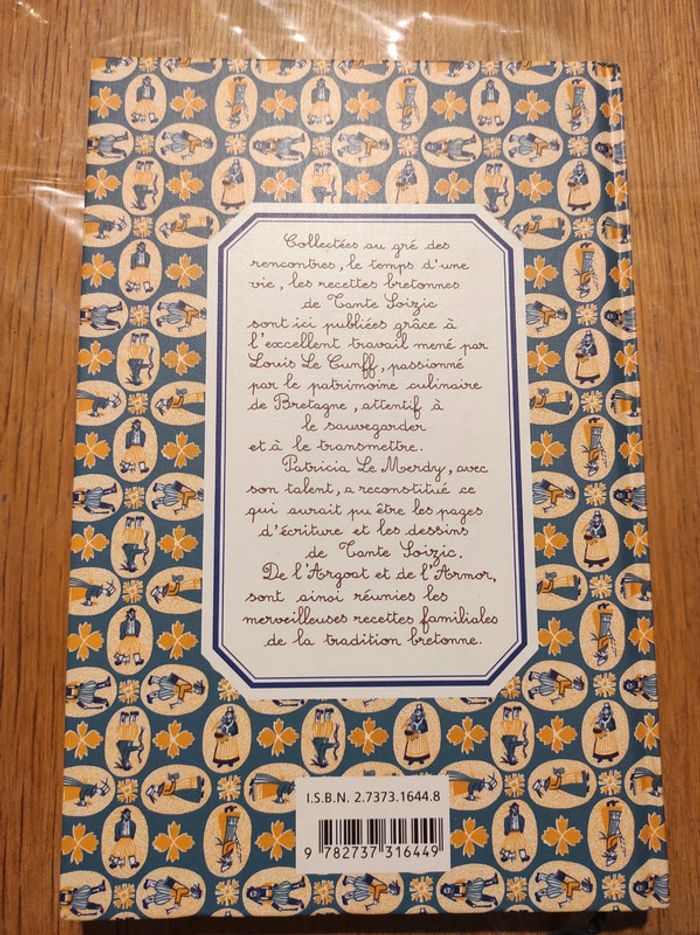 Collectées au gré des
rencontres, le temps d'une
vie, les recettes bretonnes
de Tante Soizic
sont ici publiées grâce à
l'excellent travail mené par
Louis Le Cunff, passionné
par le patrimoine culinaire
de Bretagne, attentif à
le sauvegarder
et à le transmettre.
Patricia Le Merdy, avec
son talent, a reconstitué ce
qui aurait pu être les pages
d'écriture et les dessins
de Tante Soizic.
De l'Argoat et de l'Armor,
sont ainsi réunies les
merveilleuses recettes familiales
de la tradition bretonne.
I.S.B.N. 2.7373.1644.8
9 782737 316449